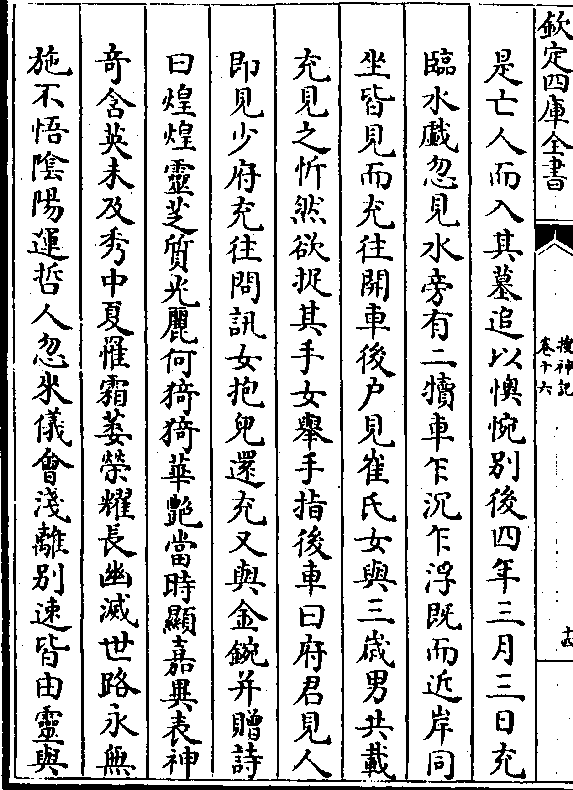 欽定四庫全書
搜神記
卷十六
十四
是亡人而入其墓追以懊惋别後四年三月三日充
臨水戲忽見水旁有二犢車乍沉乍浮既而近岸同
坐皆見而充往開車後户見崔氏女與三歳男共載
充見之忻然欲捉其手女舉手指後車曰府君見人
即見少府充往問訊女抱兒還充又與金鋺并贈詩
曰煌煌靈芝質光麗何猗猗華艷當時顯嘉異表神
竒含英未及秀中夏罹霜萎榮耀長幽滅世路永無
施不悟隂陽運哲人忽來儀會淺離别速皆由靈與